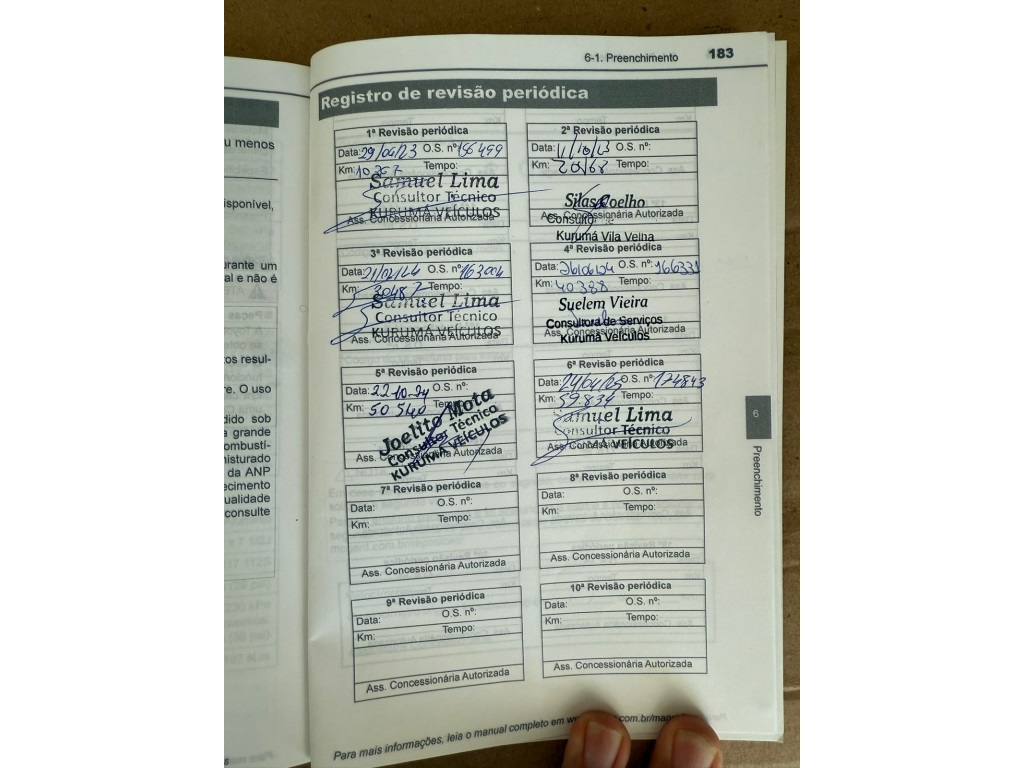 6-1. Preenchimento 183
Registro de revisão periódica
1ª Revisão periódica
Data: 29/04/23 O.S. nº 156499
Km: 10367 Tempo:
Samuel Lima
Consultor Técnico
KURUMÁ VEÍCULOS
Ass. Concessionária Autorizada
2ª Revisão periódica
Data: 11/10/23 O.S. nº:
Km: Tempo:
Silas Coelho
Ass. Concessionária Autorizada
Consultor
Kurumá Vila Velha
3ª Revisão periódica
Data: O.S. nº 163004
Km: 30487 Tempo:
Samuel Lima
Consultor Técnico
KURUMÁ VEÍCULOS
Ass. Concessionária Autorizada
4ª Revisão periódica
Data: 26/06/24 O.S. nº: 166331
Km: 40388 Tempo:
Suelem Vieira
Consultora de Serviços
Ass. Concessionária Autorizada
Kurumá Veículos
5ª Revisão periódica
Data: 22-10-24 O.S. nº:
Km: 50540 Tempo:
Joelito Mota
Consultor Técnico
KURUMÁ VEÍCULOS
Ass. Concessionária Autorizada
6ª Revisão periódica
Data: 24/04/25 O.S. nº: 174843
Km: 59.834 Tempo:
Samuel Lima
Consultor Técnico
VEÍCULOS
Ass. Concessionária Autorizada
7ª Revisão periódica
Data: O.S. nº:
Km: Tempo:
Ass. Concessionária Autorizada
8ª Revisão periódica
Data: O.S. nº:
Km: Tempo:
Ass. Concessionária Autorizada
9ª Revisão periódica
Data: O.S. nº:
Km: Tempo:
Ass. Concessionária Autorizada
10ª Revisão periódica
Data: O.S. nº:
Km: Tempo:
Ass. Concessionária Autorizada
6
Preenchimento
Para mais informações, leia o manual completo em
u menos
isponível,
urante um
al e não é
os resul-
re. O uso
dido sob
a grande
ombustí-
nisturado
da ANP
ecimento
ualidade
consulte